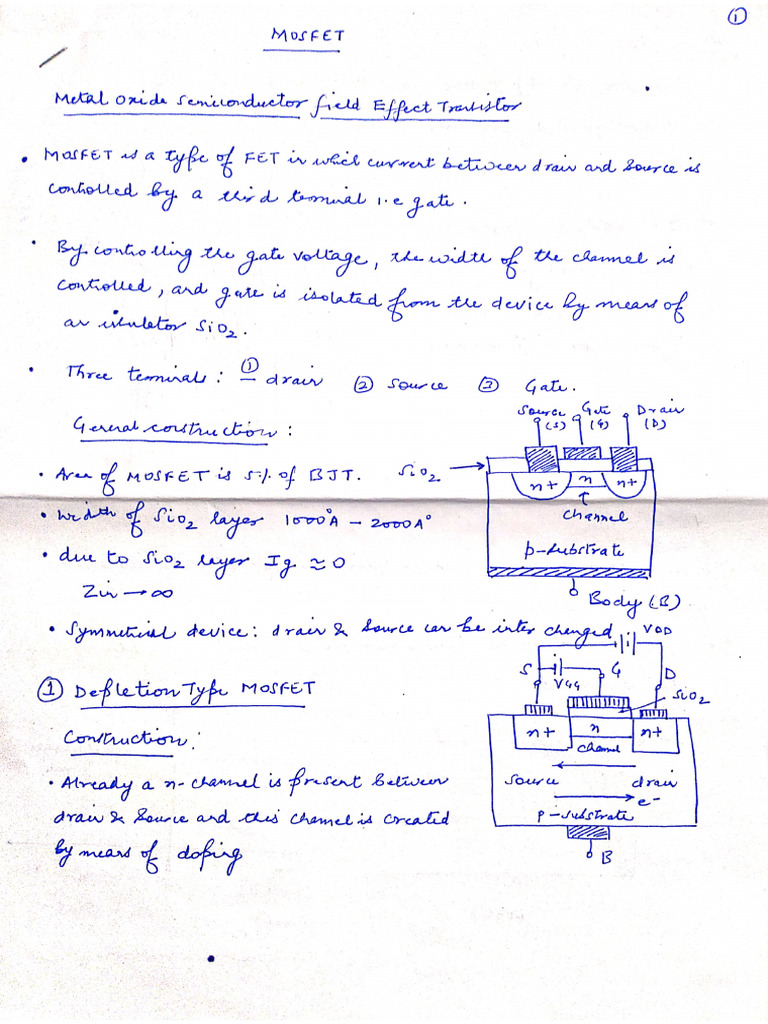 ①
MOSFET
Metal Oxide Semiconductor field Effect Transistor
• MOSFET is a type of FET in which current between drain and source is
controlled by a third terminal i.e gate.
• By controlling the gate voltage, the width of the channel is
controlled, and gate is isolated from the device by means of
an insulator SiO2.
• Three terminals: ① drain ② source ③ Gate.
General construction:
Source (S) Gate (G) Drain (D)
• Area of MOSFET is 5% of BJT.
SiO2
n+ n n+
channel
p-substrate
Body (B)
• Width of SiO2 layer 1000°A - 2000A°
• due to SiO2 layer Ig ≃ 0
Zin → ∞
• Symmetrical device: drain & source can be inter changed
① Depletion Type MOSFET
VDD
S VGG G D
SiO2
n+ n n+
channel
source drain
e-
p-substrate
B
Construction:
• Already a n-channel is present between
drain & source and this channel is created
by means of doping